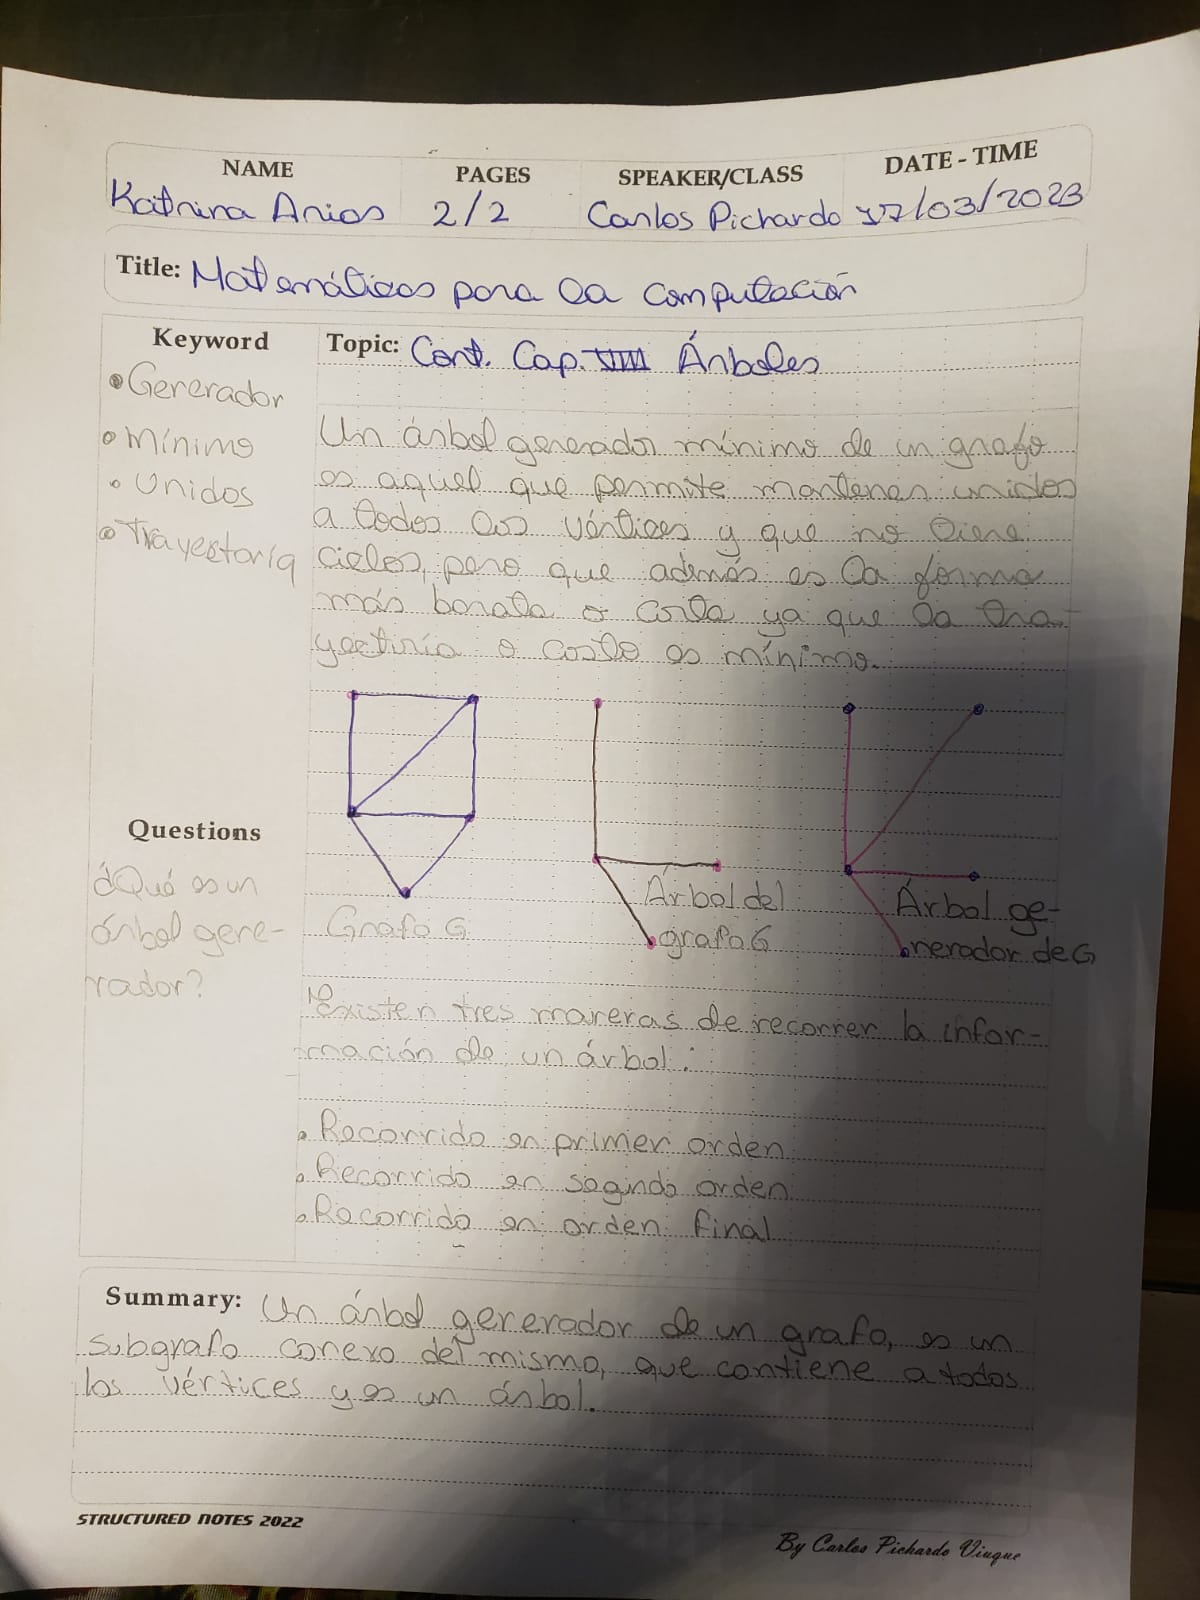 NAME PAGES SPEAKER/CLASS DATE - TIME
Katrina Arias 2/2 Carlos Pichardo 17/03/2023
Title: Matemáticas para la computación
Keyword
• Gererador
• Mínimo
• Unidos
• Trayectoria
Topic: Cont. Cap. VIII Árboles
Un árbol generador mínimo de un grafo
es aquel que permite mantener unidos
a todos los vértices y que no tiene
ciclos, pero que además es la forma
más barata o corta ya que la tra-
yectiria o costo es mínimo.
Grafo G
Árbol del
grafo G
Árbol ge-
nerador de G
Questions
¿Qué es un
árbol gere-
rador?
Existen tres mareras de recorrer la infor-
mación de un árbol:
• Recorrido en primer orden
• Recorrido en segindo orden
• Recorrido en orden final
Summary: Un árbol gererador de un grafo, es un
subgrafo conexo del mismo, que contiene a todos
los vértices y es un árbol.
STRUCTURED NOTES 2022
By Carlos Pichardo Viuque